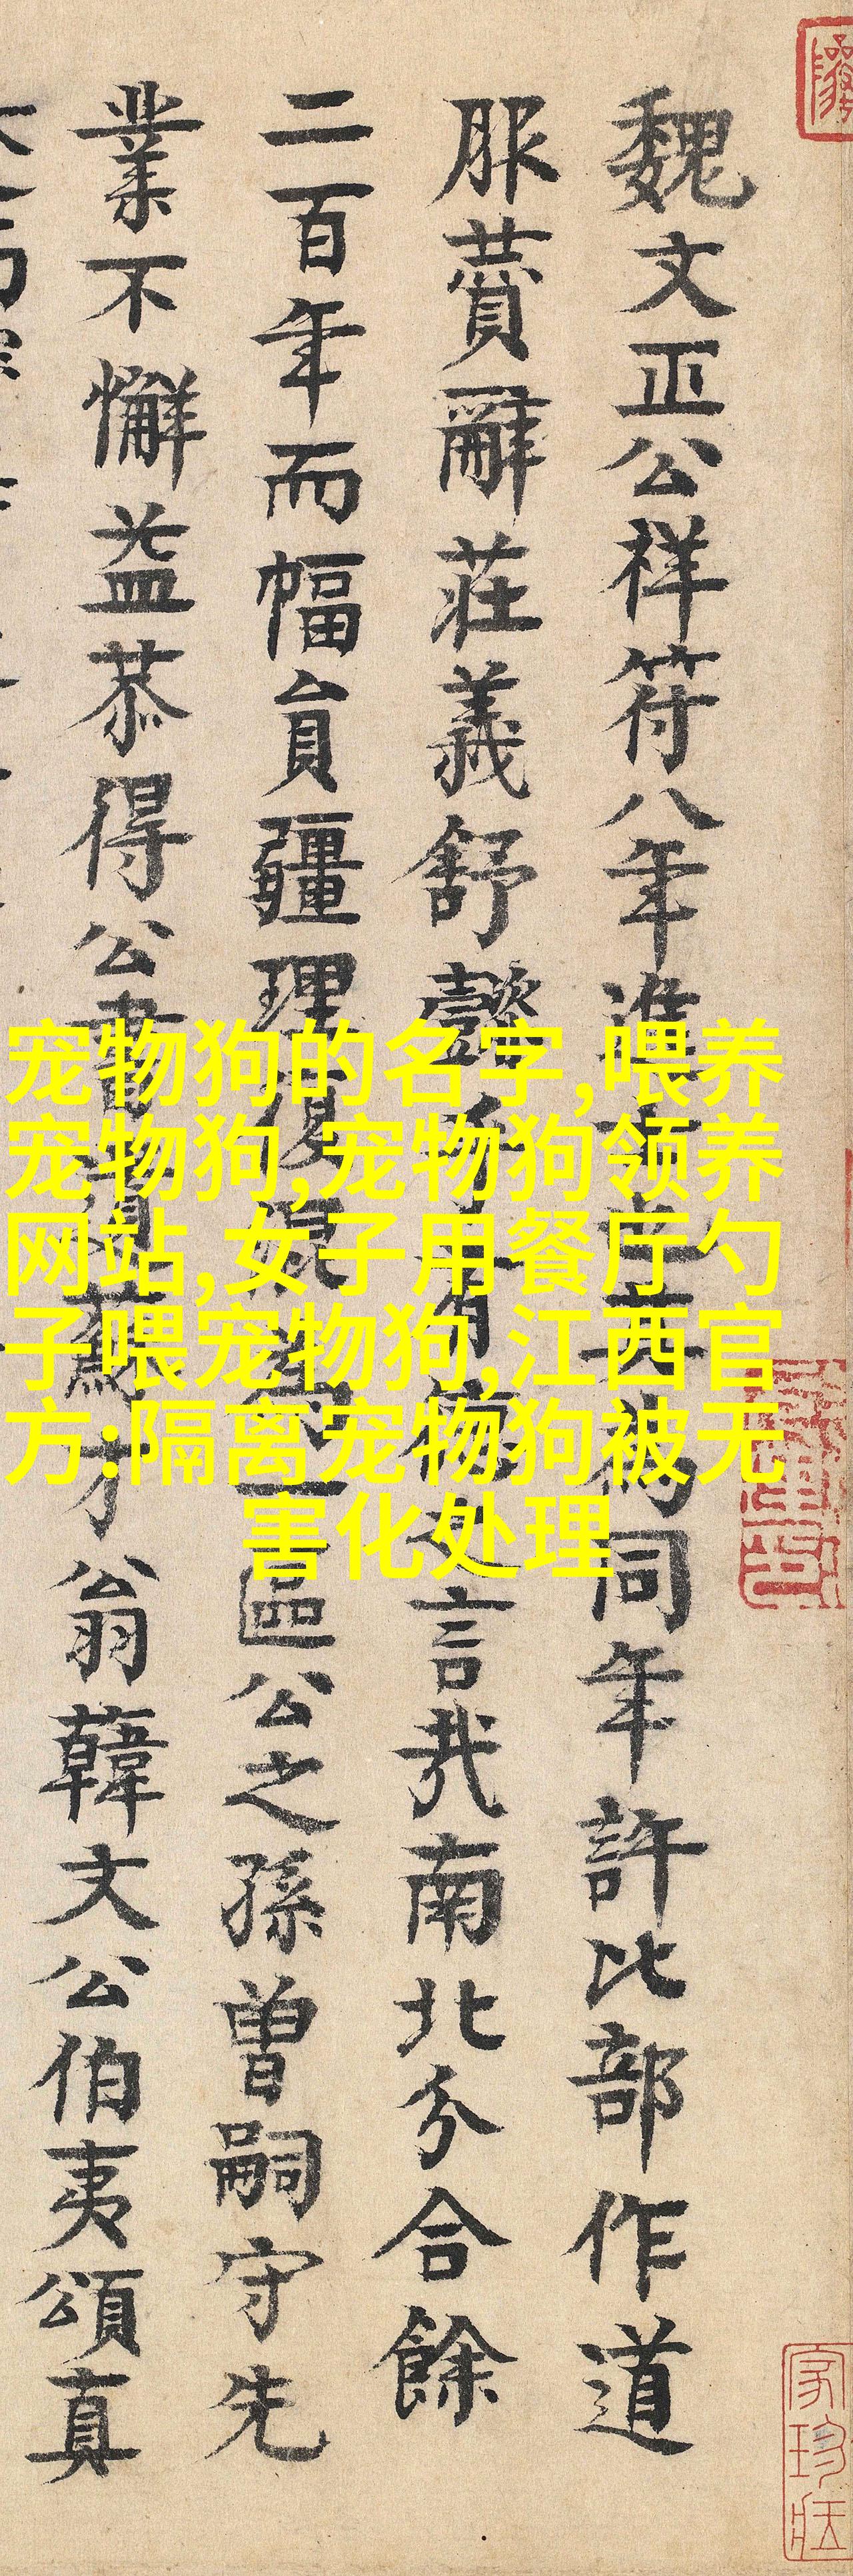 魏文正公祥符八年進同年許比部作道
服贊辭莊義舒之言哉南北分合餘
二百年而幅員疆理復混一區公之孫曾嗣守先
業不懈益恭得公書蘇才翁韓文公伯夷頌真
宠物狗的名字,喂养
宠物狗,宠物狗领养
网站,女子用餐厅勺
子喂宠物狗,江西官
方:隔离宠物狗被无
害化处理